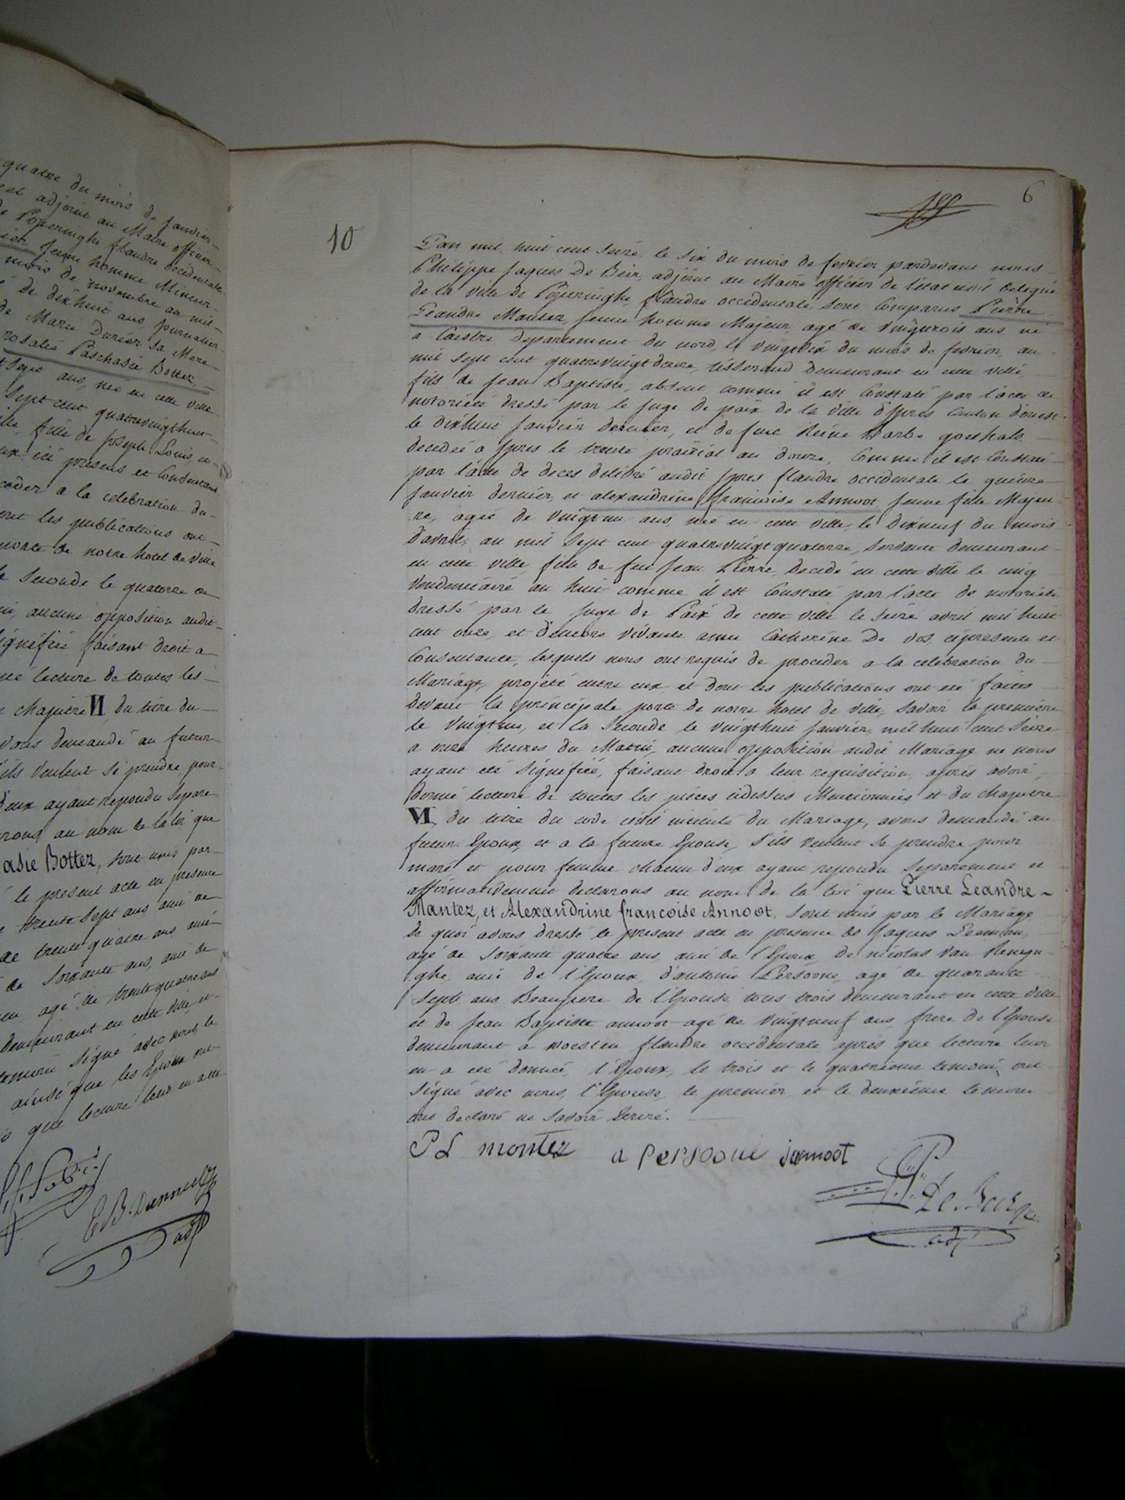 quatre du mois de Janvier
adjoint au Maire officier
de Poperinghe flandre occidentale
Jeune homme Mineur
mois de novembre an mil
de dix huit ans journalier
de Marie Durier sa Mere
rosalie Paschasie Bottez
Seize ans, née en cette ville
Sept cent quatrevingtdix
fille de Joseph Louis
ici présens et Consentans
proceder a la celebration du
les publications ont
porte de notre hotel de ville
la Seconde le quatorze
aucune opposition audit
signifiée faisant droit a
lecture de toutes les
chapitre VI du titre du
avons demandé au futur
s'ils veulent se prendre pour
d'eux ayant repondu separe
au nom de la loi que
asie Bottez, sont unis par
le present acte en presence
trente Sept ans ami de
de trente quatre ans ami
de Soixante ans, ami de
agé de trente quatre ans
demeurant en cette ville, et
témoin signé avec nous le
ainsi que les Epoux ont
que lecture leur en a été
6
10
L'an mil huit cent Seize, le Six du mois de fevrier pardevant nous
Philippe Jaques De Beir, adjoint au Maire officier de l'etat civil delegué
de la ville de Poperinghe, flandre occidentale sont Comparus Pierre
Leandre Mantez, jeune homme Majeur, agé de vingttrois ans né
a Caestre departement du nord, le vingtsix du mois de fevrier, an
mil sept cent quatrevingt douze, tisserand demeurant en cette ville
fils de Jean Baptiste, absent comme il est Constaté par l'acte de
notorieté dressé par le Juge de paix de la ville d'Ypres Canton d'ouest
le dixhuit Janvier dernier, et de feue Reine Barbe goethals
decedée a Ypres le trente prairial an douze, Comme il est Constaté
par l'acte de deces delivré audit Ypres flandre occidentale le quinze
Janvier dernier, et alexandrine françoise Annoot jeune fille Majeu
re, agée de vingtun ans, née en cette ville, le Dixneuf du mois
D'avril, an mil Sept cent quatrevingt quatorze, Servante demeurant
en cette ville fille de feu Jean Pierre, Decedé en cette ville le cinq
Vendemiaire an huit comme il est Constaté par l'acte de notorieté
dressé par le Juge de Paix de cette ville le Seize avril mil huit
cent onze, et d'encore vivante anne Catherine De Vos cipresente et
Consentante, lesquels nous ont requis de proceder a la celebration du
Mariage, projeté entre eux et dont les publications ont été faites
Devant la principale porte de notre hotel de ville, Savoir la premiere
le vingtun, et la Seconde le vingthuit Janvier, mil huit cent Seize
a onze heures du Matin, aucune opposition audit Mariage ne nous
ayant été Signifiée, faisant droit a leur requisition, après avoir
donné lecture de toutes les pièces cidessus Mentionnées et du chapitre
VI du titre du code civil intitulé du Mariage, avons demandé au
futur Epoux et a la future Epouse, S'ils veulent Se prendre pour
mari et pour femme chacun d'eux ayant repondu Separement et
affirmativement declarons au nom de la loi que Pierre Leandre
Mantez, et Alexandrine francoise Annoot, Sont unis par le Mariage
De quoi avons Dressé le present acte en presence de Jaques
agé de Soixante quatre ans ami de l'Epoux, de nicolas van
ghe ami de l'Epoux, d'antoine Persoone, agé de quarante
Sept ans Beaupere de l'Epouse tous trois demeurant en cette ville
et de Jean Baptiste annoot agé de vingtneuf ans, frere de l'Epouse
demeurant a woesten flandre occidentale, après que lecture leur
en a été donnée, l'Epoux, le trois et le quatrieme temoins, ont
Signé avec nous, l'Epouse, le premier et le deuxième temoins
ont declaré ne Savoir Ecrire.
P L montez a persoone jannoot
P. J. De Beir
adj